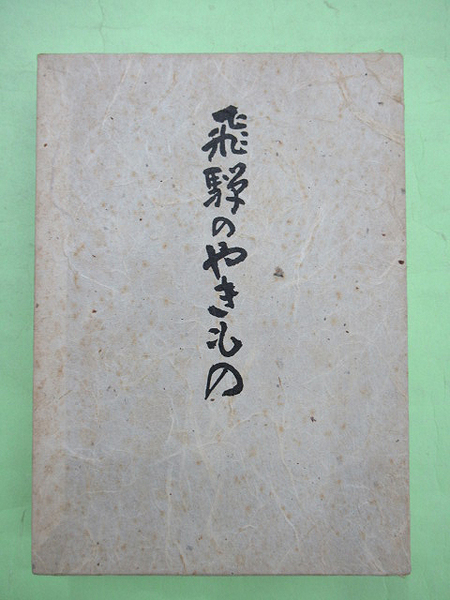 飛騨のやきもの